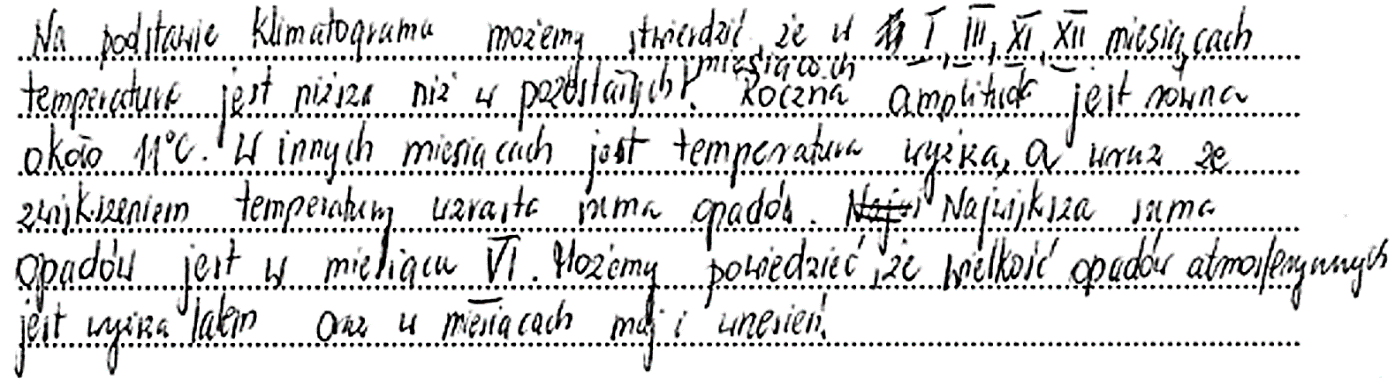 Na podstawie klimatogramu możemy stwierdzić, że w I, III, XI, XII miesiącach
temperatura jest niższa niż w pozostałych miesiącach. Roczna amplituda jest równa
około 11°C. W innych miesiącach jest temperatura wyższa, a wraz ze
zwiększeniem temperatury wzrasta suma opadów. Największa suma
opadów jest w miesiącu VI. Możemy powiedzieć, że wielkość opadów atmosferycznych
jest wyższa latem oraz w miesiącach maj i wrzesień.